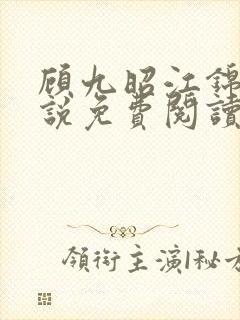 顾九昭江錦
説免費閱讀
領銜主演|秘方